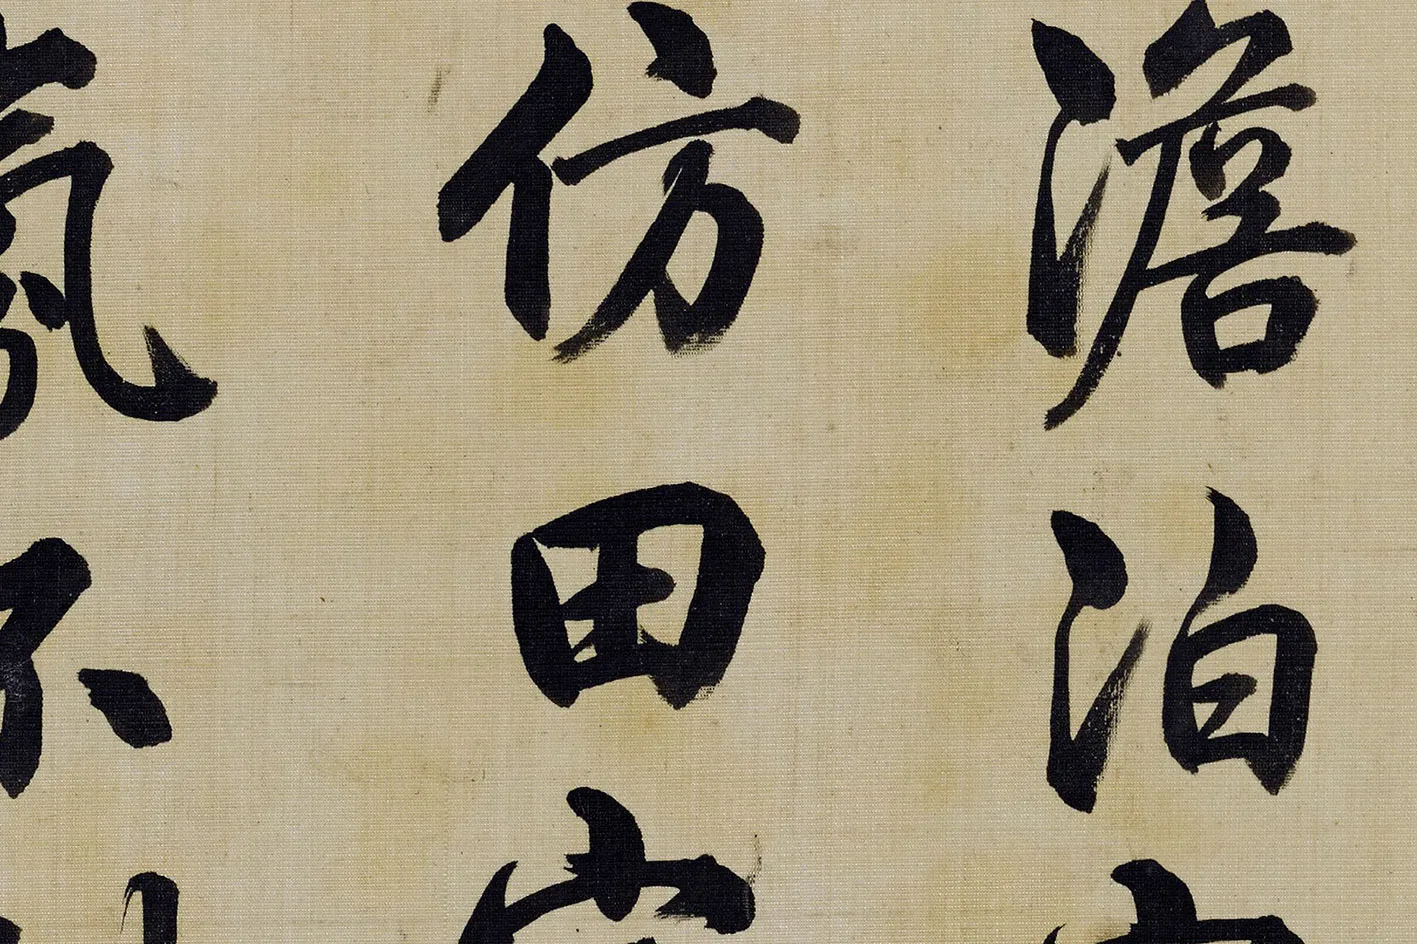 澹泊
仿田
氣不